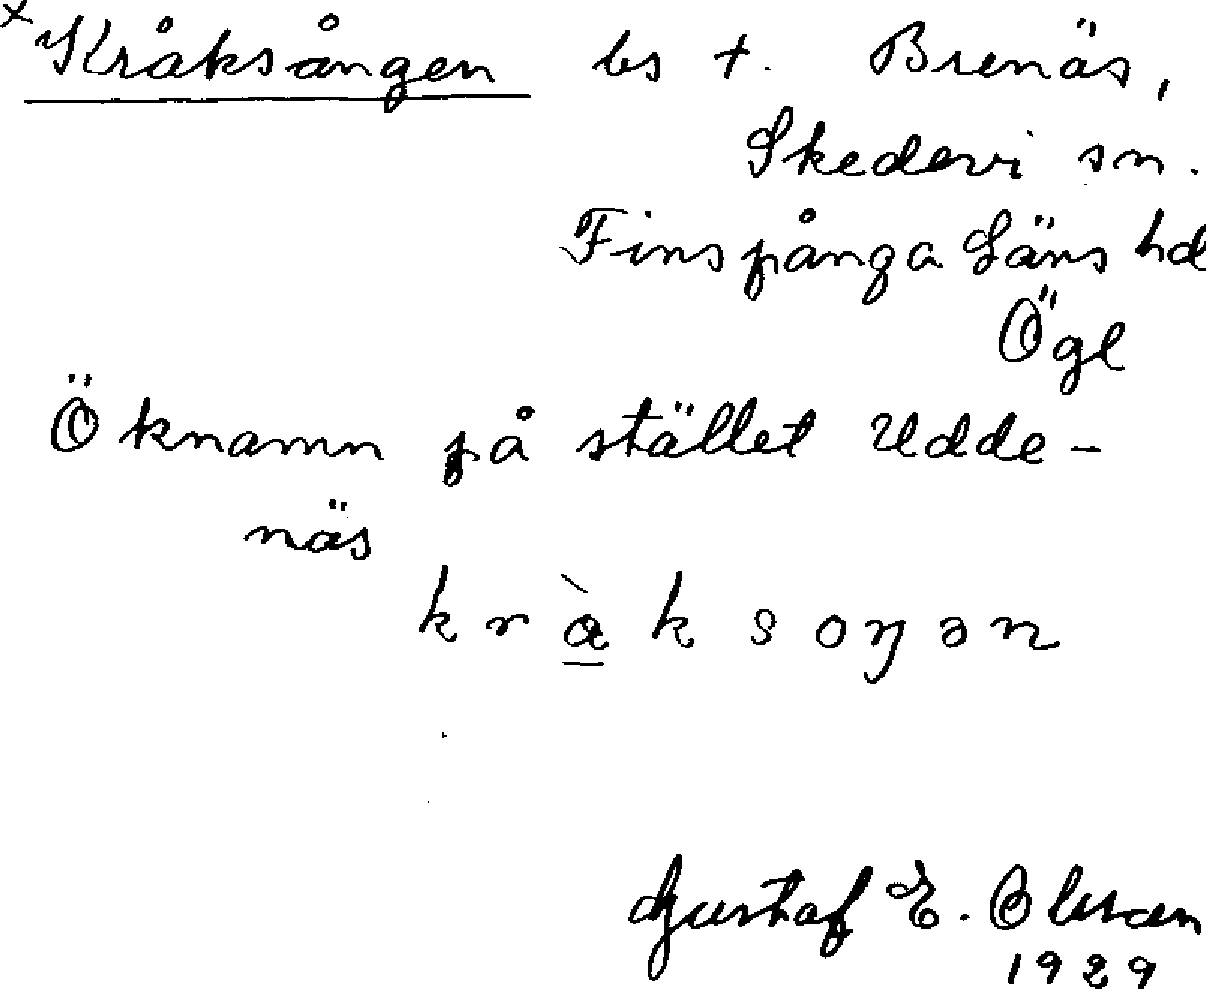 × Kråksången bs t. Brenäs,
Skedevi sn.
Finspånga Läns hd
Ögl
Öknamn på stället Udde-
näs
kràksoŋən
Gustaf E. Olsson
1929